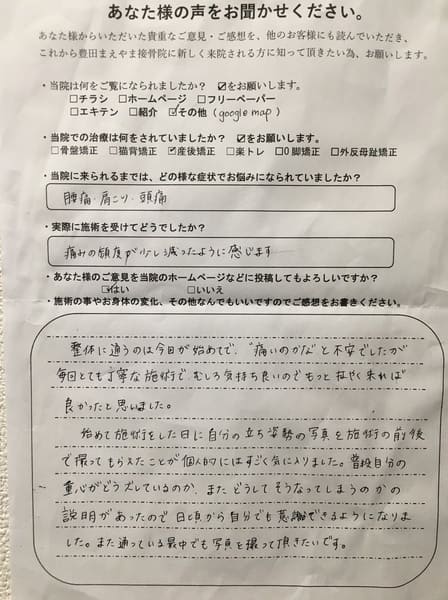 あなた様の声をお聞かせください。
あなた様からいただいた貴重なご意見・ご感想を、他のお客様にも読んでいただき、
これから豊田まえやま接骨院に新しく来院される方に知って頂きたい為、お願いします。
・当院は何をご覧になられましたか？ ☑をお願いします。
□チラシ □ホームページ □フリーペーパー
□エキテン □紹介 ☑その他（google map）
・当院での治療は何をされていましたか？ ☑をお願いします。
□骨盤矯正 □猫背矯正 ☑産後矯正 □楽トレ □O脚矯正 □外反母趾矯正
・当院に来られるまでは、どの様な症状でお悩みになられていましたか？
腰痛・肩こり・頭痛
・実際に施術を受けてどうでしたか？
痛みの頻度が少し減ったように感じます
・あなた様のご意見を当院のホームページなどに投稿してもよろしいですか？
☑はい □いいえ
・施術の事やお身体の変化、その他なんでもいいですのでご感想をお書きください。
整体に通うのは今日が始めてで、"痛いのかな"と不安でしたが
毎回とても丁寧な施術で、むしろ気持ち良いのでもっと早く来れば
良かったと思いました。
始めて施術をした日に自分の立ち姿勢の写真を施術の前後
で撮ってもらえたことが個人的にはすごく気に入りました。普段自分の
重心がどうズレているのか、またどうしてそうなってしまうのかの
説明があったので日頃から自分でも意識できるようになりま
した。また通っている最中でも写真を撮って頂きたいです。